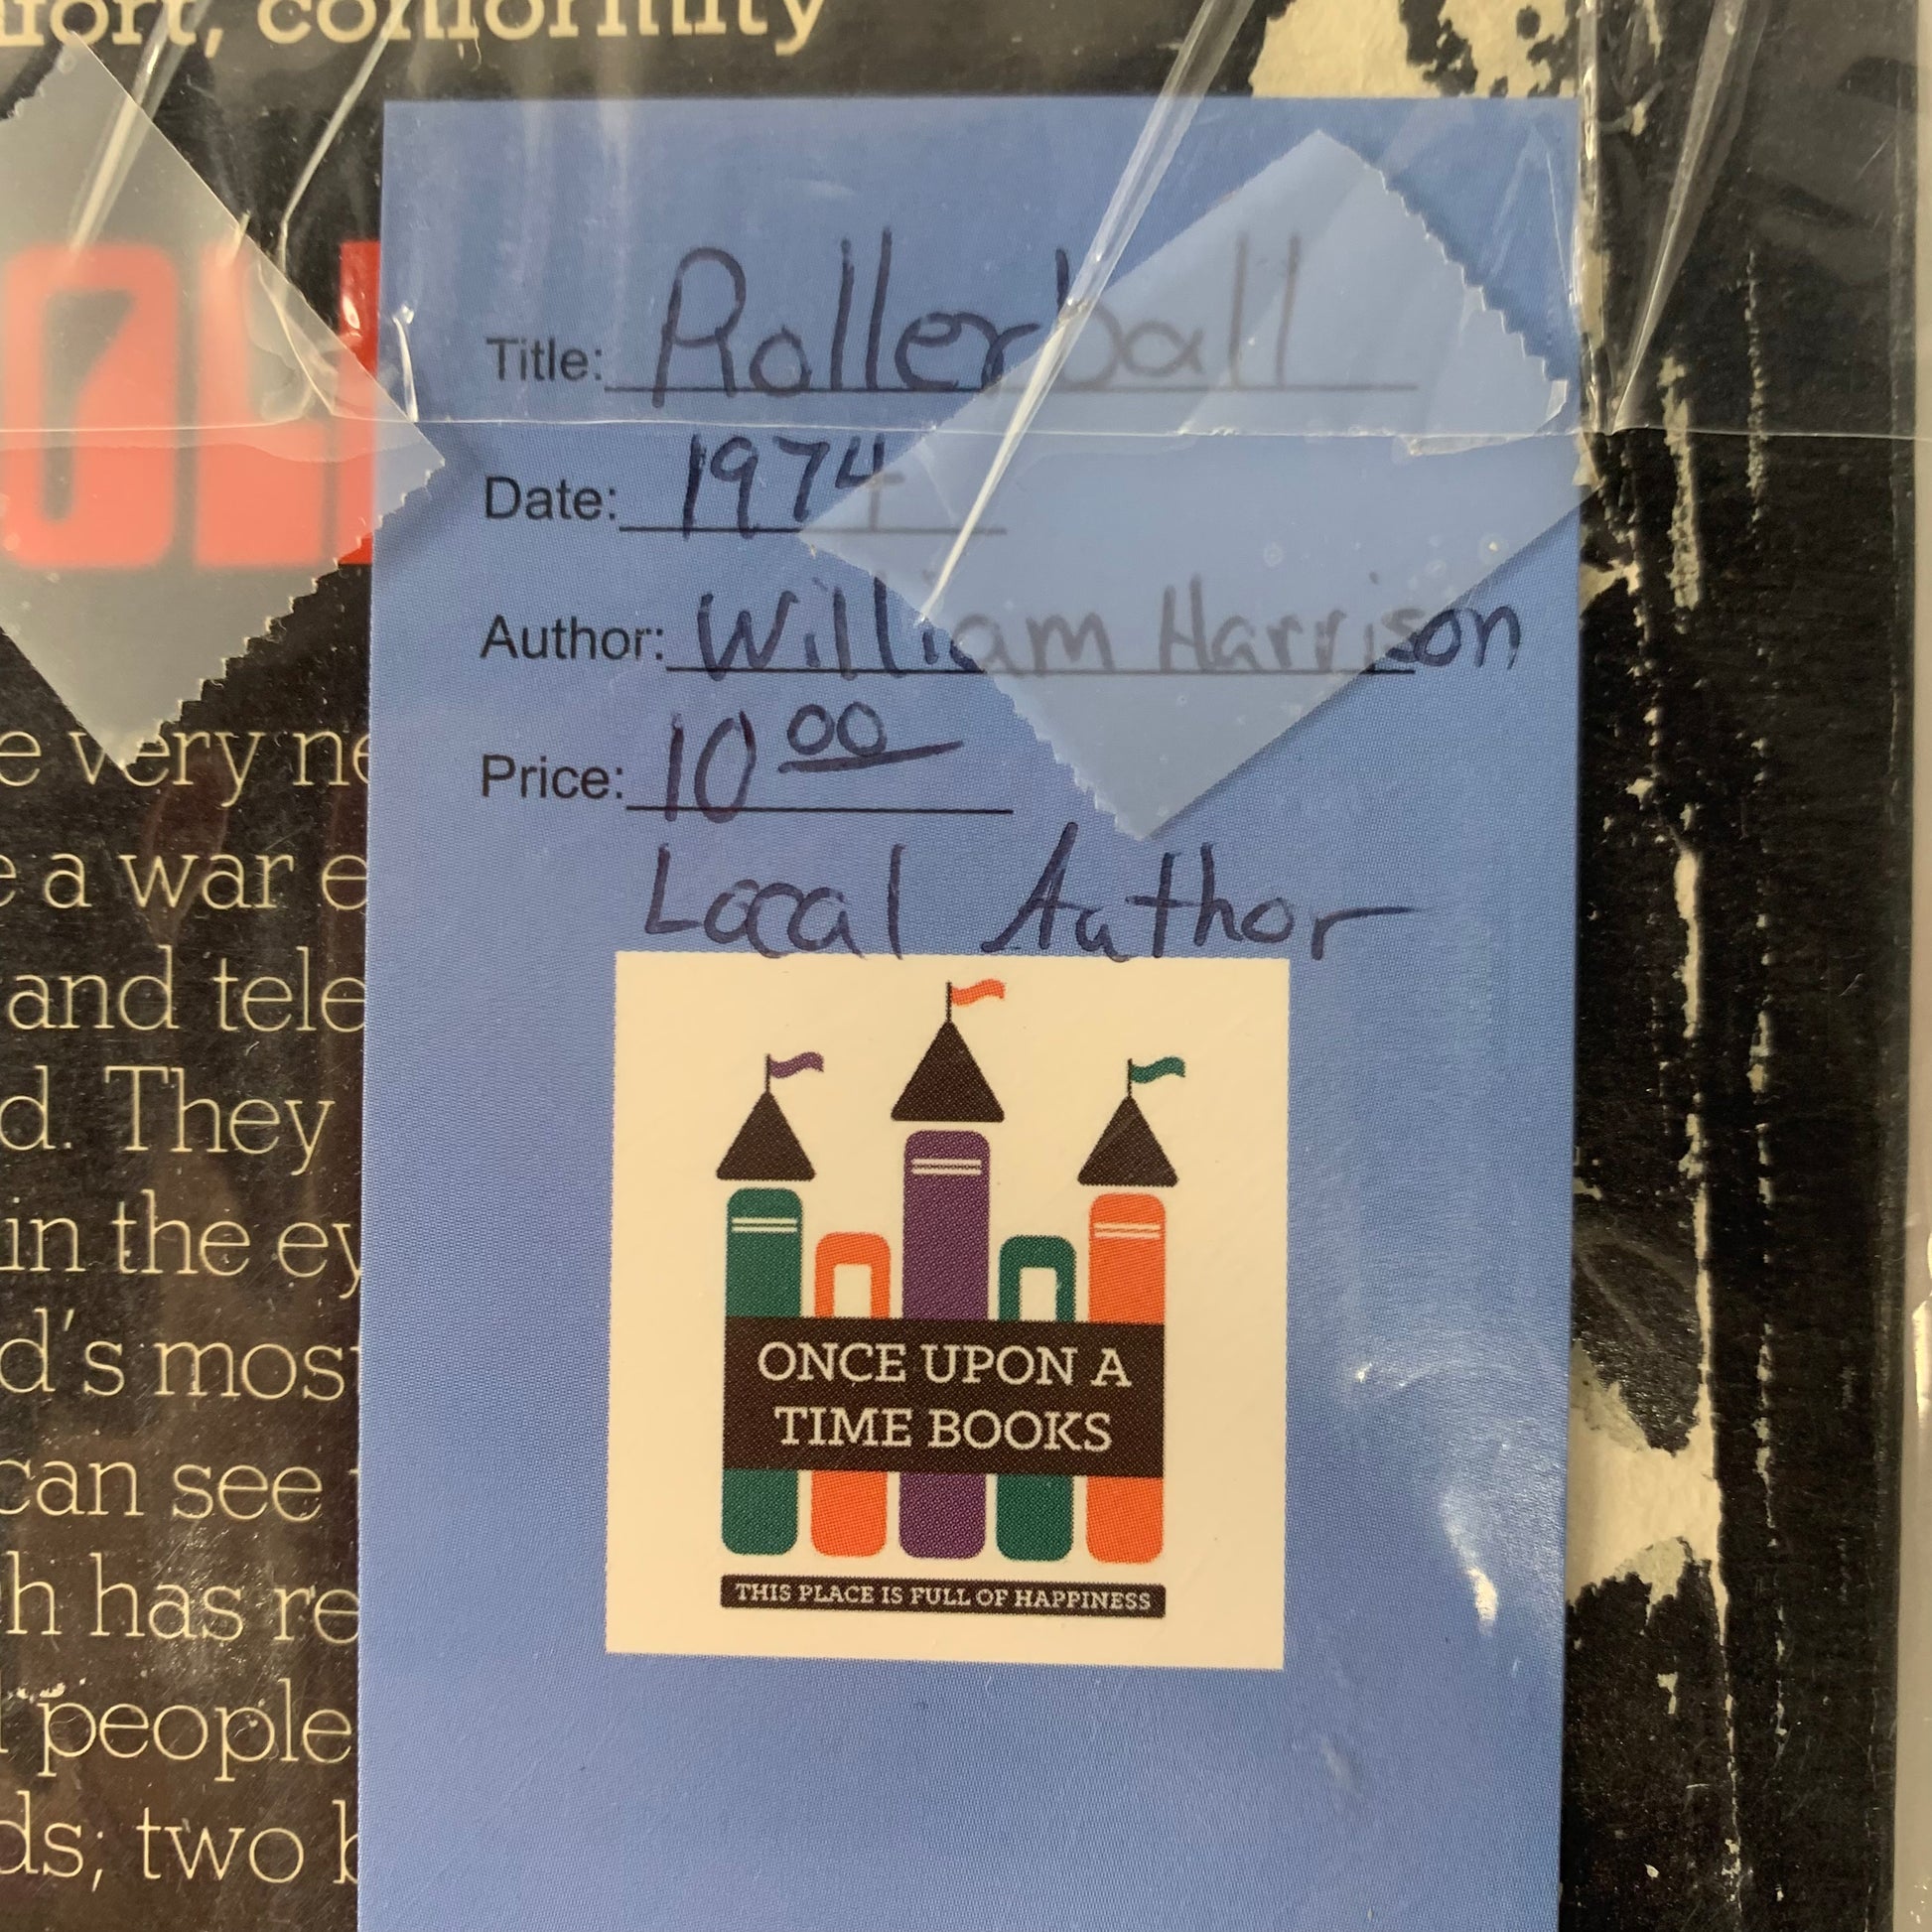 fort, conformity
OLL
Title: Rollerball
Date: 1974
Author: William Harrison
Price: 10 00
Local Author
ONCE UPON A
TIME BOOKS
THIS PLACE IS FULL OF HAPPINESS
e very ne
e a war e
and tele
d. They
in the ey
d's most
can see
h has re
people
ds; two b